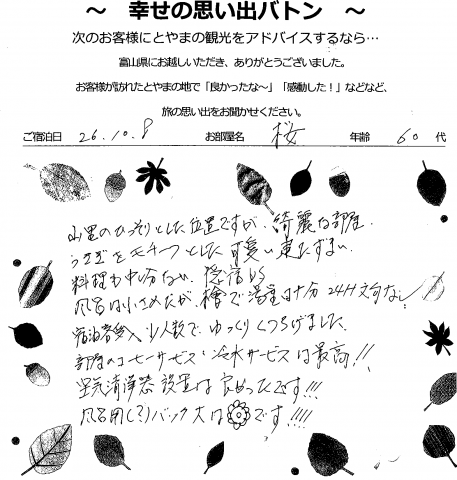 ～ 幸せの思い出バトン ～
次のお客様にとやまの観光をアドバイスするなら…
富山県にお越しいただき、ありがとうございました。
お客様が訪れたとやまの地で「良かったな～」「感動した！」などなど、
旅の思い出をお聞かせください。
ご宿泊日 26.10.8 お部屋名 桜 年齢 60 代
山里のひっそりとした位置ですが、綺麗な部屋、
うさぎをモチーフとした可愛い
料理も申し分ない、隠れ宿
風呂は小さめだが、檜で湯量は十分 24H 文句なし
宿泊者 少人数で、ゆっくりくつろげました。
部屋のコーヒーサービス・冷水サービスは最高!!
空気清浄器設置は良かったです!!!
風呂用(?)バック大は です!!!!